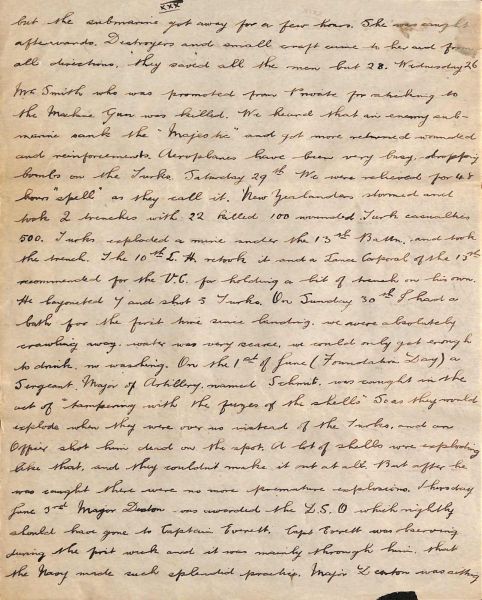 XXX
but the submarine got away for a few hours. She was caught
afterwards. Destroyers and small craft came to her aid from
all directions, they saved all the men but 28. Wednesday 26
Mr Smith who was promoted from Private for sticking to
the Machine Gun was killed. We heard that an enemy sub-
marine sank the "Majestic" and got more returned wounded
and reinforcements. Aeroplanes have been very busy, dropping
bombs on the Turks. Saturday 29th We were relieved for 48
hours "spell" as they call it. New Zealanders stormed and
took 2 trenches with 22 killed 100 wounded. Turk casualties
500. Turks exploded a mine under the 13th Battn. and took
the trench. The 10th L. H. retook it and a Lance Corporal of the 15th
recommended for the V.C. for holding a bit of trench on his own.
He bayoneted 7 and shot 5 Turks. On Sunday 30th I had a
bath for the first time since landing. we were absolutely
crawling away. water was very scarce, we could only get enough
to drink, no washing. On the 1st of June (Foundation Day) a
Sergeant Major of Artillery, named Schmit, was caught in the
act of "tampering with the fuzes of the shells" So as they would
explode when they were over us instead of the Turks, and an
Officer shot him dead on the spot. A lot of shells were exploding
like that, and they couldn't make it out at all. But after he
was caught there were no more premature explosions. Thursday
June 3rd Major Denton was awarded the D.S.O which rightly
should have gone to Captain Everett. Capt Everett was observing
during the first week and it was mainly through him, that
the Navy made such splendid practice. Major Denton was acting